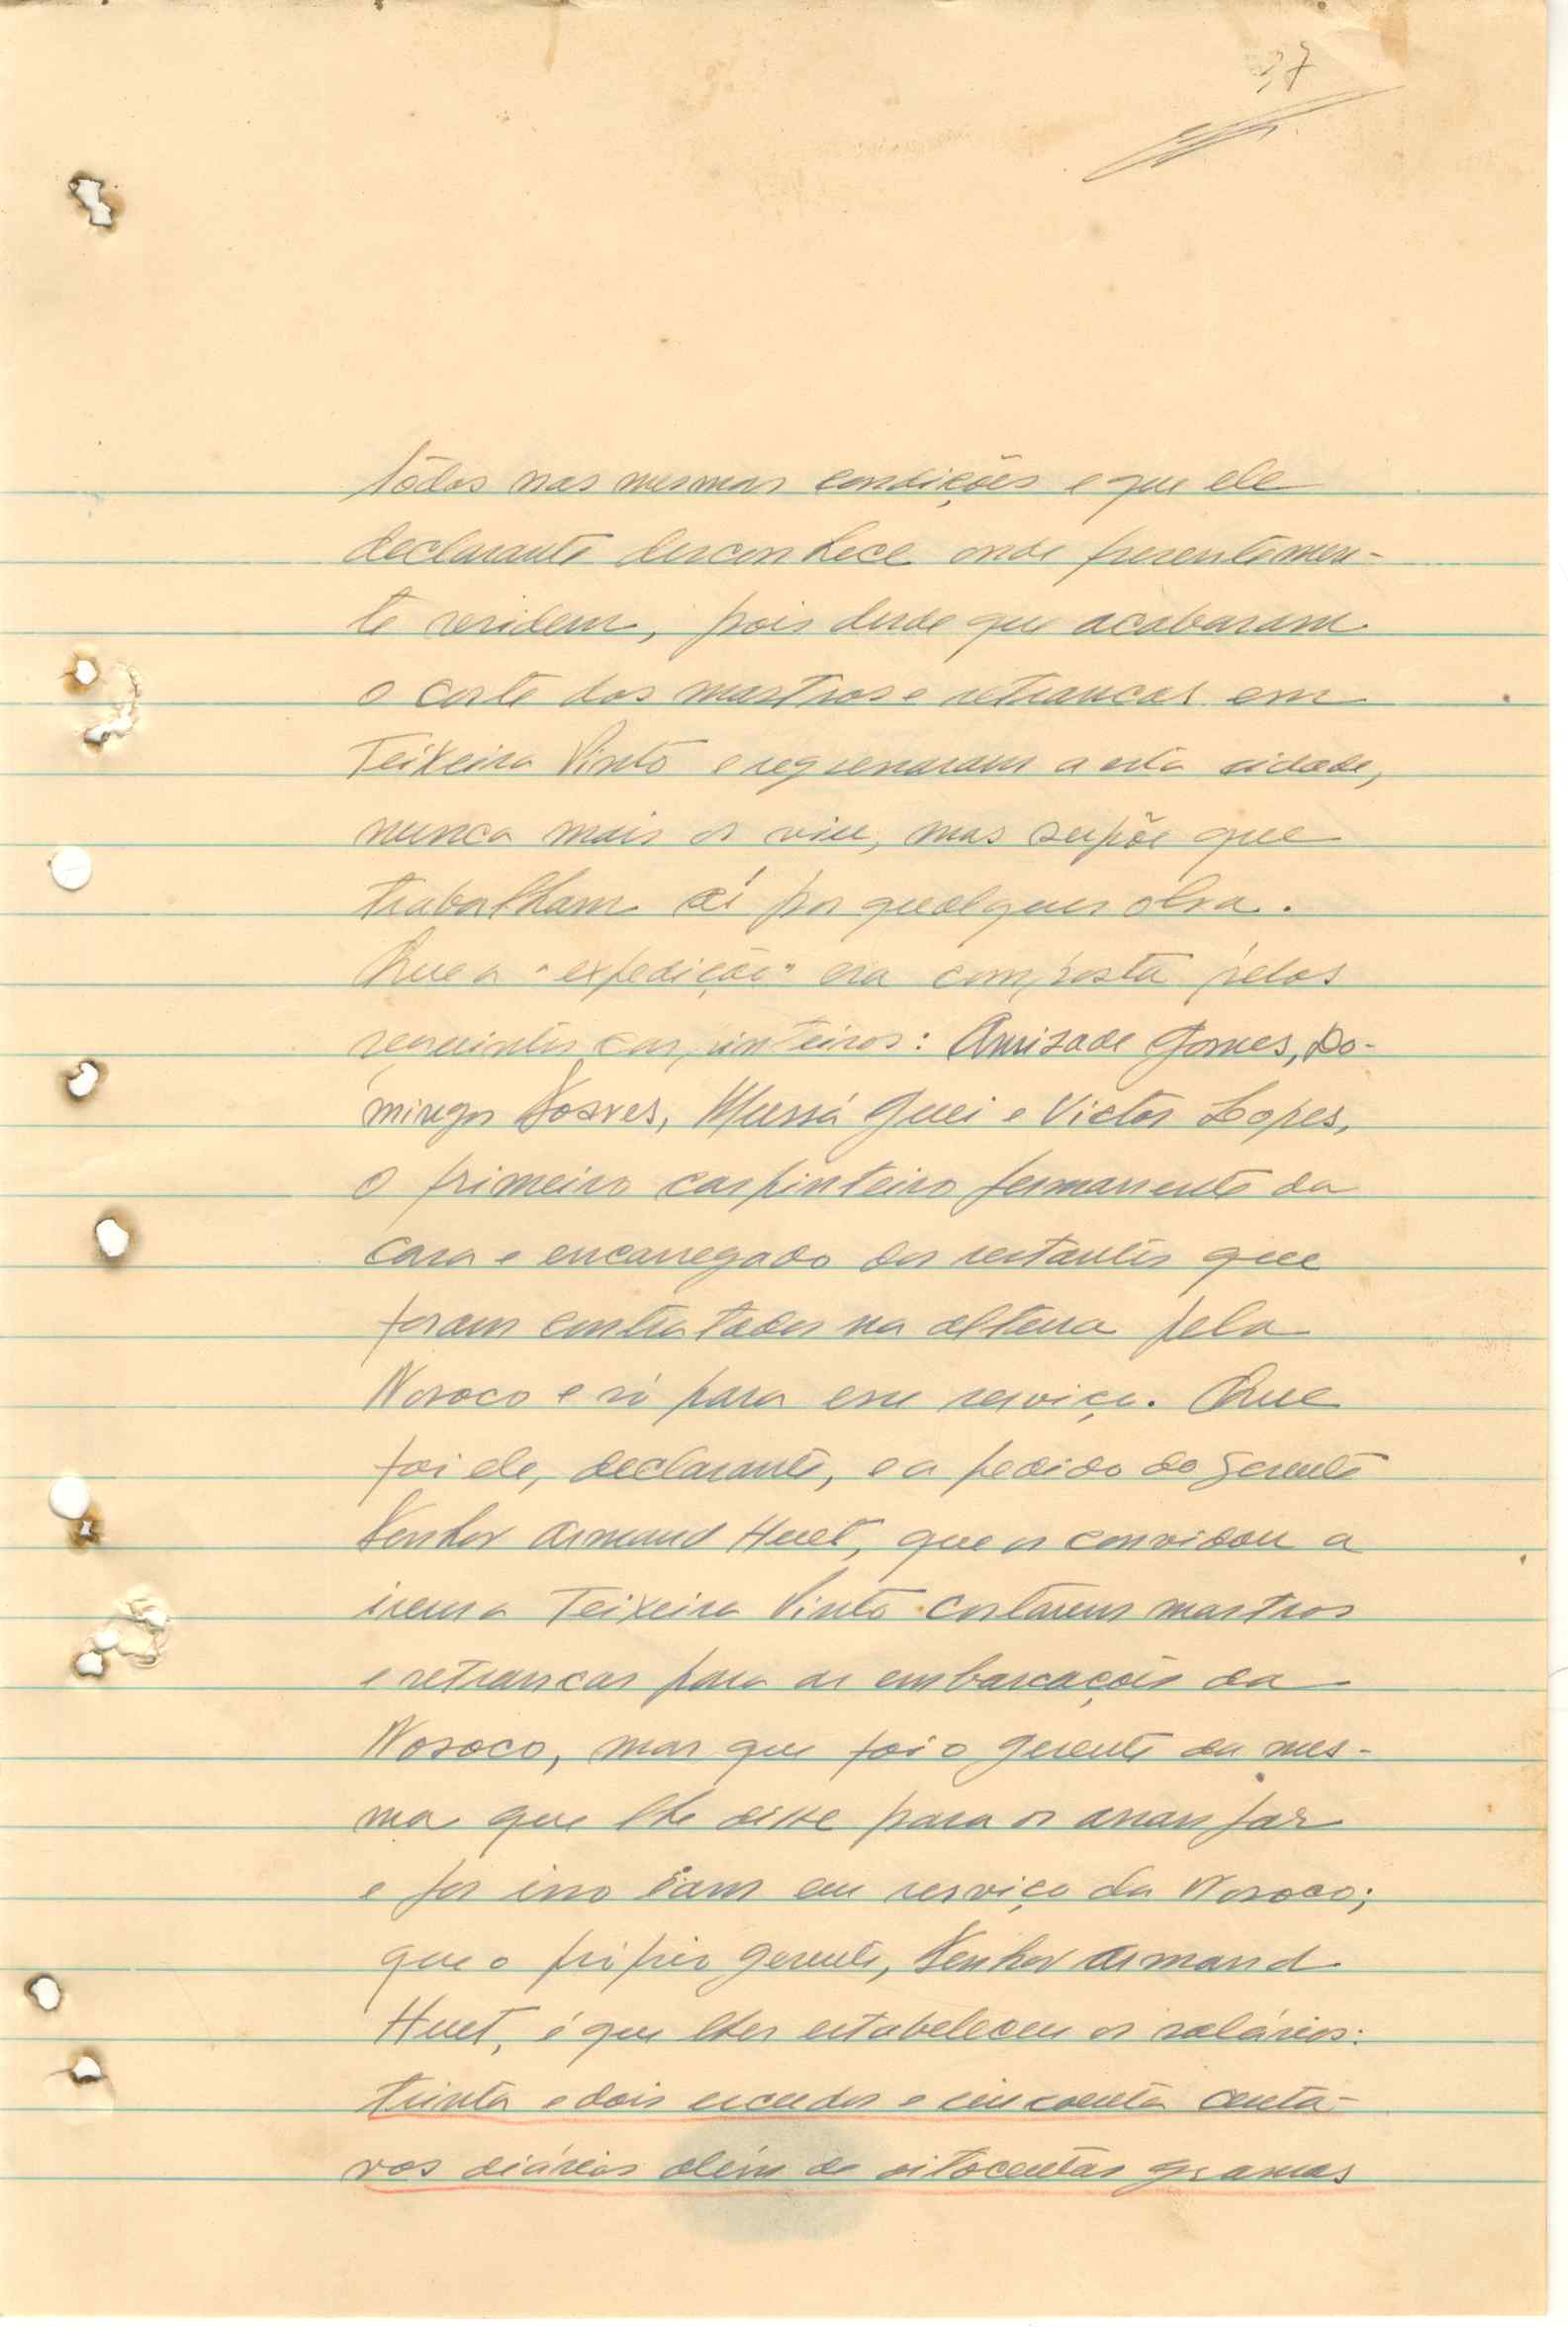 37
todos nas mesmas condições e que ele
declarante desconhece onde presentemen-
te residem, pois desde que acabaram
o corte dos mastros e retrancas em
Teixeira Pinto e regressaram a esta cidade,
nunca mais os viu, mas supõe que
trabalham aí por qualquer obra.
Que a "expedição" era composta pelos
seguintes carpinteiros: Amizade Gomes, Do-
mingos Soares, Mussá Guei e Victor Lopes,
o primeiro carpinteiro permanente da
casa e encarregado dos restantes que
foram contratados na altura pela
Nosoco e só para esse serviço. Que
foi ele, declarante, e a pedido do gerente
Senhor Armand Huet, que os convidou a
irem a Teixeira Pinto cortarem mastros
e retrancas para as embarcações da
Nosoco, mas que foi o gerente da mes-
ma que lhe disse para os arranjar
e por isso iam em serviço da Nosoco;
que o próprio gerente, Senhor Armand
Huet, é que lhes estabeleceu os salários:
trinta e dois escudos e cincoenta centa-
vos diários além de oitocentas gramas